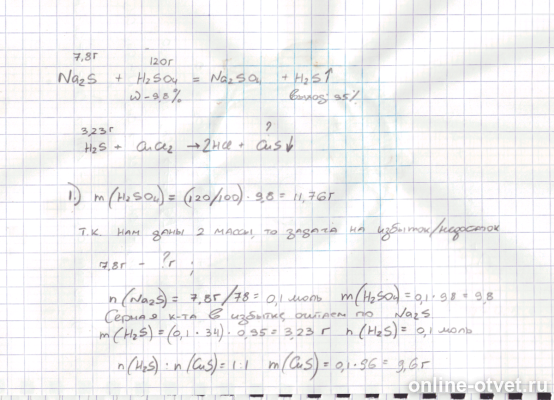 7,8г 120г
Na2S + H2SO4 = Na2SO4 + H2S↑
ω - 9,8% выход: 95%
3,23г ?
H2S + CuCl2 → 2HCl + CuS↓
1.) m(H2SO4) = (120/100) · 9,8 = 11,76г
т.к нам даны 2 массы, то задача на избыток/недосток
7,8г - ?г ;
n(Na2S) = 7,8г/78 = 0,1 моль m(H2SO4) = 0,1 · 98 = 9,8
Серная к-та в избытке, считаем по Na2S
m(H2S) = (0,1 · 34) · 0,95 = 3,23 г n(H2S) = 0,1 моль
n(H2S) : n(CuS) = 1:1 m(CuS) = 0,1 · 96 = 9,6г
online-otvet.ru